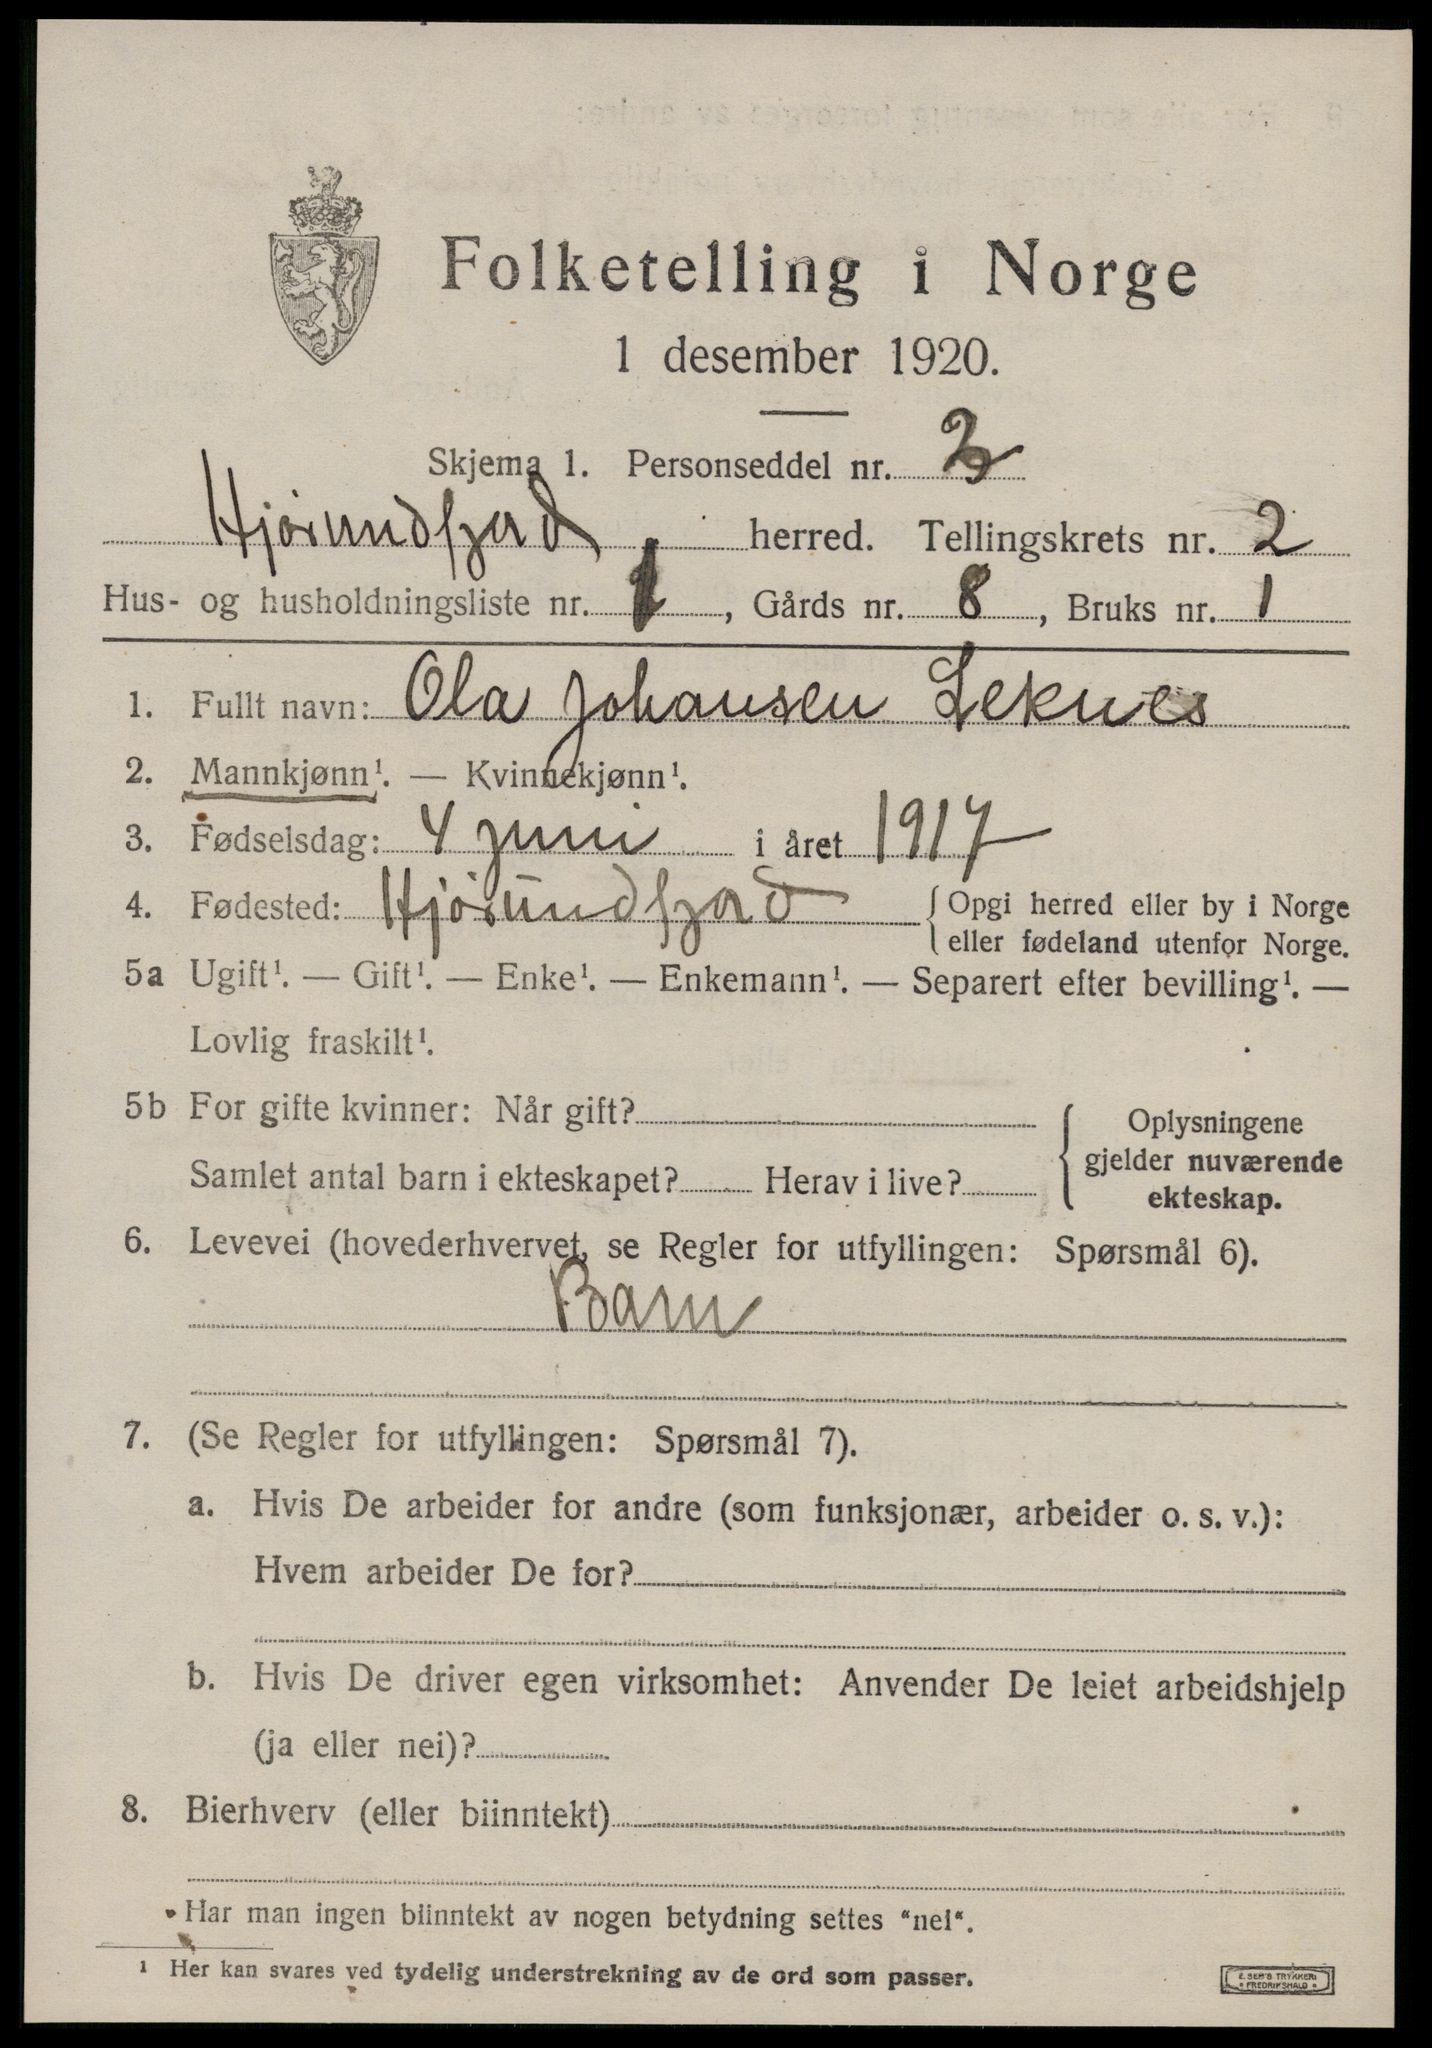 Folketelling i Norge
1 desember 1920.
Skjema 1. Personseddel nr. 3
Hjørundfjord herred. Tellingskrets nr. 2
Hus- og husholdningsliste nr. 1, Gårds nr. 8, Bruks nr. 1
1. Fullt navn: Ola Johansen Leknes
2. Mannkjønn¹. — Kvinnekjønn¹.
3. Fødselsdag: 4 juni i året 1917
4. Fødested: Hjørundfjord { Opgi herred eller by i Norge
eller fødeland utenfor Norge.
5a Ugift¹. — Gift¹. — Enke¹. — Enkemann¹. — Separert efter bevilling¹. —
Lovlig fraskilt¹.
5b For gifte kvinner: Når gift?
Samlet antal barn i ekteskapet? Herav i live?
{ Oplysningene
gjelder nuværende
ekteskap.
6. Levevei (hovederhvervet, se Regler for utfyllingen: Spørsmål 6).
Barn
7. (Se Regler for utfyllingen: Spørsmål 7).
a. Hvis De arbeider for andre (som funksjonær, arbeider o. s. v.):
Hvem arbeider De for?
b. Hvis De driver egen virksomhet: Anvender De leiet arbeidshjelp
(ja eller nei)?
8. Bierhverv (eller biinntekt)
Har man ingen biinntekt av nogen betydning settes "nei".
¹ Her kan svares ved tydelig understrekning av de ord som passer.
E. SEM'S TRYKKERI
FREDRIKSHALD